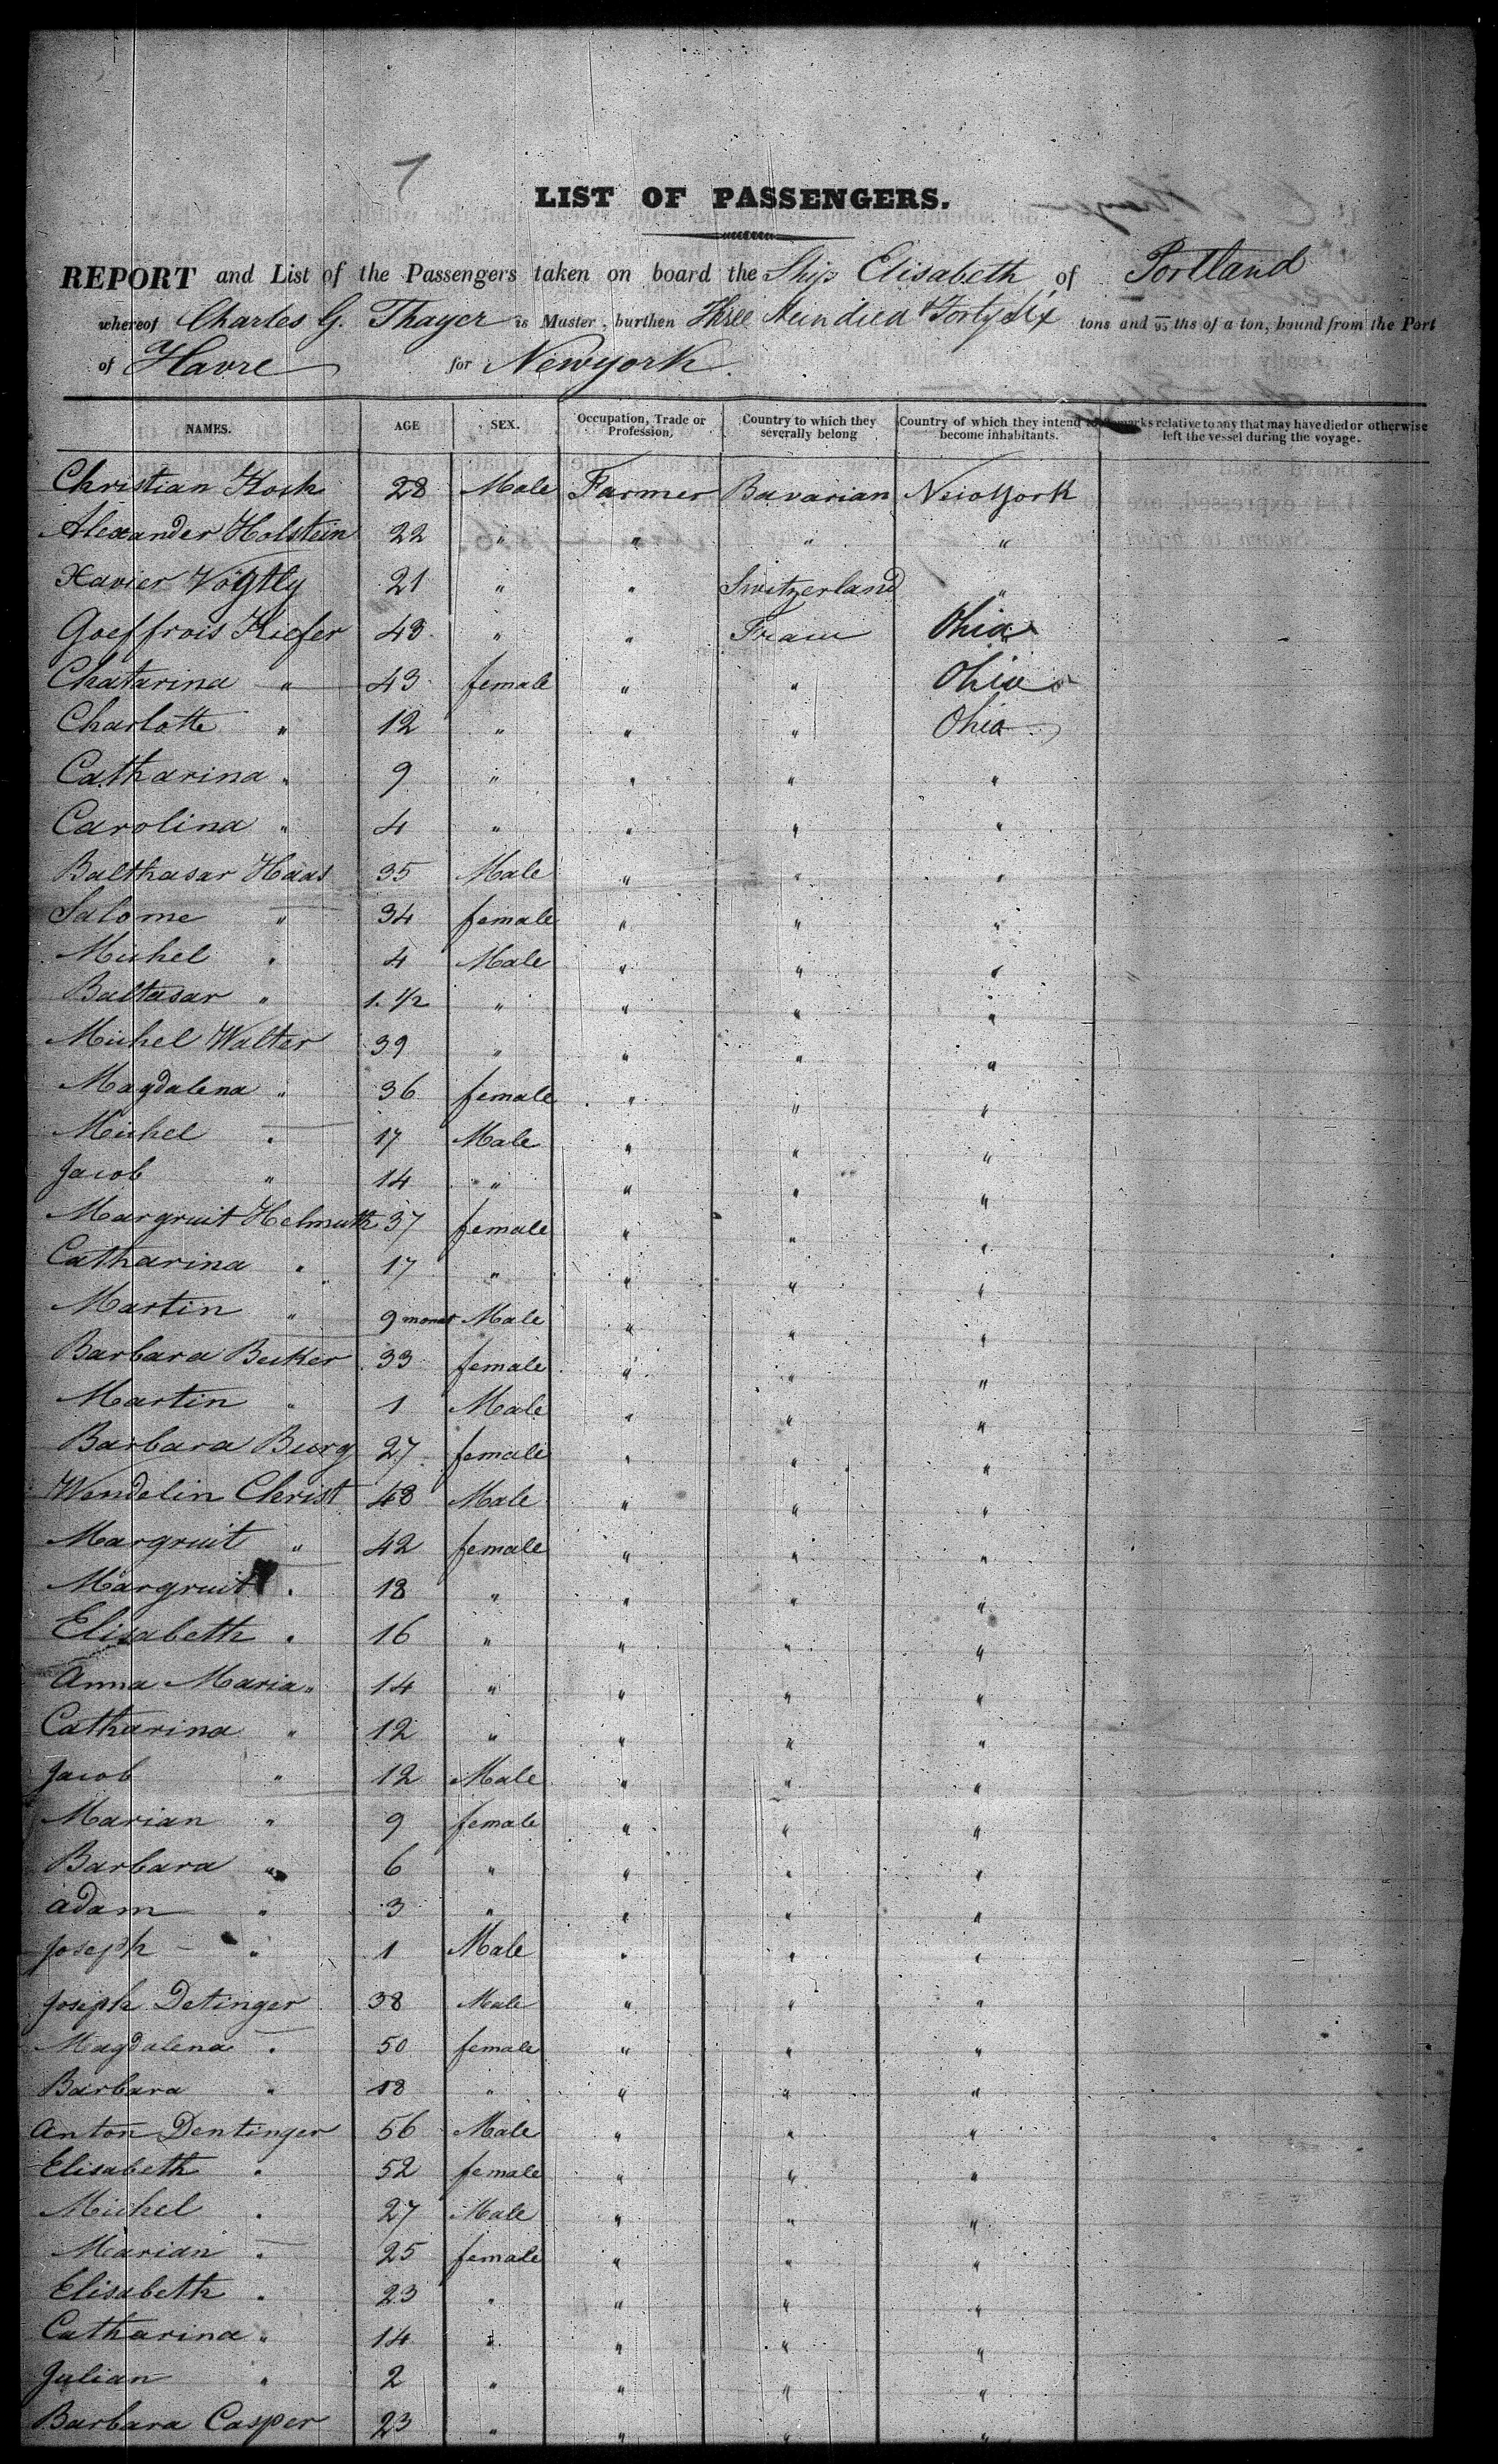 7
LIST OF PASSENGERS.
REPORT and List of the Passengers taken on board the Ship Elisabeth of Portland
whereof Charles G. Thayer is Master, burthen Three Hundred & Forty Six tons and 95 ths of a ton, bound from the Port
of Havre for Newyork.
NAMES. AGE SEX. Occupation, Trade or Profession, Country to which they severally belong Country of which they intend to become inhabitants. Remarks relative to any that may have died or otherwise left the vessel during the voyage.
Christian Koch 28 Male Farmer Bavarian New York
Alexander Holstein 22 " " " "
Xavier Vögtly 21 " " Switzerland "
Goeffrois Kiefer 43 " " France Ohio
Chatarina " 43 female " " Ohio
Charlotte " 12 " " " Ohio
Catharina " 9 " " " "
Carolina " 4 " " " "
Balthasar Haas 35 Male " " "
Salome " 34 female " " "
Michel " 4 Male " " "
Baltasar " 1. 1/2 " " " "
Michel Walter 39 " " " "
Magdalena " 36 female " " "
Michel " 17 Male " " "
Jacob " 14 " " " "
Margruit Helmuth 37 female " " "
Catharina " 17 " " " "
Martin " 9 monat Male " " "
Barbara Becker 33 female " " "
Martin " 1 Male " " "
Barbara Burg 27 female " " "
Wendelin Cherist 48 Male " " "
Margruit " 42 female " " "
Margruit " 18 " " " "
Elisabeth " 16 " " " "
Anna Maria " 14 " " " "
Catharina " 12 " " " "
Jacob " 12 Male " " "
Marian " 9 female " " "
Barbara " 6 " " " "
Adam " 3 " " " "
Joseph " 1 Male " " "
Joseph Detinger 38 Male " " "
Magdalena " 50 female " " "
Barbara " 18 " " " "
Anton Dentinger 56 Male " " "
Elisabeth " 52 female " " "
Michel " 27 Male " " "
Marian " 25 female " " "
Elisabeth " 23 " " " "
Catharina " 14 " " " "
Julian " 2 " " " "
Barbara Casper 23 " " " "